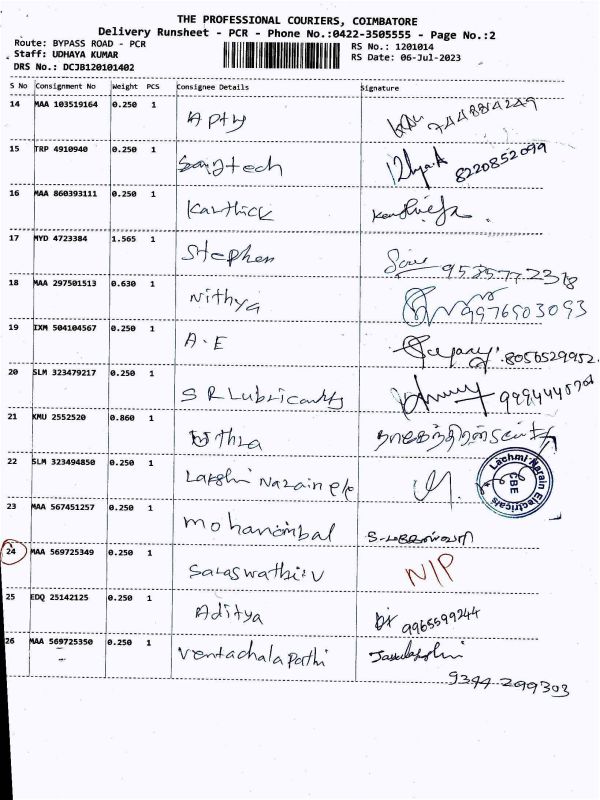 THE PROFESSIONAL COURIERS, COIMBATORE
Delivery Runsheet - PCR - Phone No.:0422-3505555 - Page No.:2
Route: BYPASS ROAD - PCR
RS No.: 1201014
Staff: UDHAYA KUMAR
RS Date: 06-Jul-2023
DRS No.: DCJB120101402
S No Consignment No Weight PCS Consignee Details Signature
14 MAA 103519164 0.250 1 Apty
15 TRP 4910940 0.250 1 Sangtech 8220852099
16 MAA 860393111 0.250 1 Karthick
17 MYD 4723384 1.565 1 Stephen
18 MAA 297501513 0.630 1 Nithya 9976903093
19 IXM 504104567 0.250 1 A.E 8056529952
20 SLM 323479217 0.250 1 S R Lubricants
21 KMU 2552520 0.860 1 Mithra
22 SLM 323494850 0.250 1 Lakshmi Narain Lachmi Narain Electricals CBE
23 MAA 567451257 0.250 1 Mohanambal
24 MAA 569725349 0.250 1 Saraswathi.V N/P
25 EDQ 25142125 0.250 1 Aditya 9965599244
26 MAA 569725350 0.250 1 Ventachalapathi
9344299303